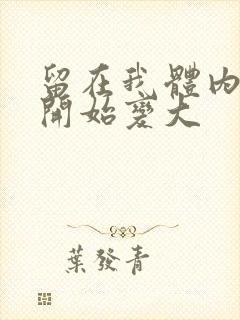 留在我體内
開始變大
葉發青